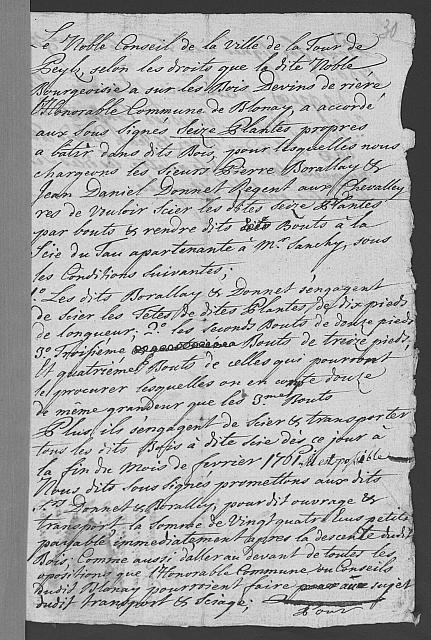 30
Le Noble Conseil de la Ville de la Tour de
Peylz, selon les droits que la dite Noble
Bourgeoisie a sur les Bois Devins de riere
l'Honorable Commune de Blonay, a accordé
aux sous signés Seize Plantes propres
a bâtir dans dits Bois, pour lesquelles nous
chargeons les Sieurs Pierre Borallay &
Jean Daniel Donnet Regent aux Chevalley
res de Vouloir Scier les dites Seize Plantes
par bouts & rendre dits Bouts à la
Scie du Tau apartenante à Mr. Sanchy, sous
les Conditions suivantes;
1.o Les dits Borallay & Donnet s'engagent
de Scier les Tetes de dites Plantes de dix pieds
de longueur; 2.o les seconds Bouts de douze pieds
3.o Troisième Bouts de treize pieds,
Et quatrième Bouts de celles qui pourront
le procurer lesquelles on en conte douze
de même grandeur que les 3.mes Bouts
Plus, ils s'engagent de Scier & transporter
tous les dits à dite Scie dès ce jour à
la fin du Mois de fevrier 1761 Si il est possible
Nous dits Sous signés promettons aux dits
Srs. Donnet & Borallay, pour dit ouvrage &
transport la Somme de Vingt quatre Ecus petits
payable immediatement après la descente dudit
Bois; Comme aussi d'aller au Devant de toutes les
opositions que l'Honorable Commune ou Conseils
dudit Blonay pourroient faire au sujet
dudit transport & Sciage;
Pour